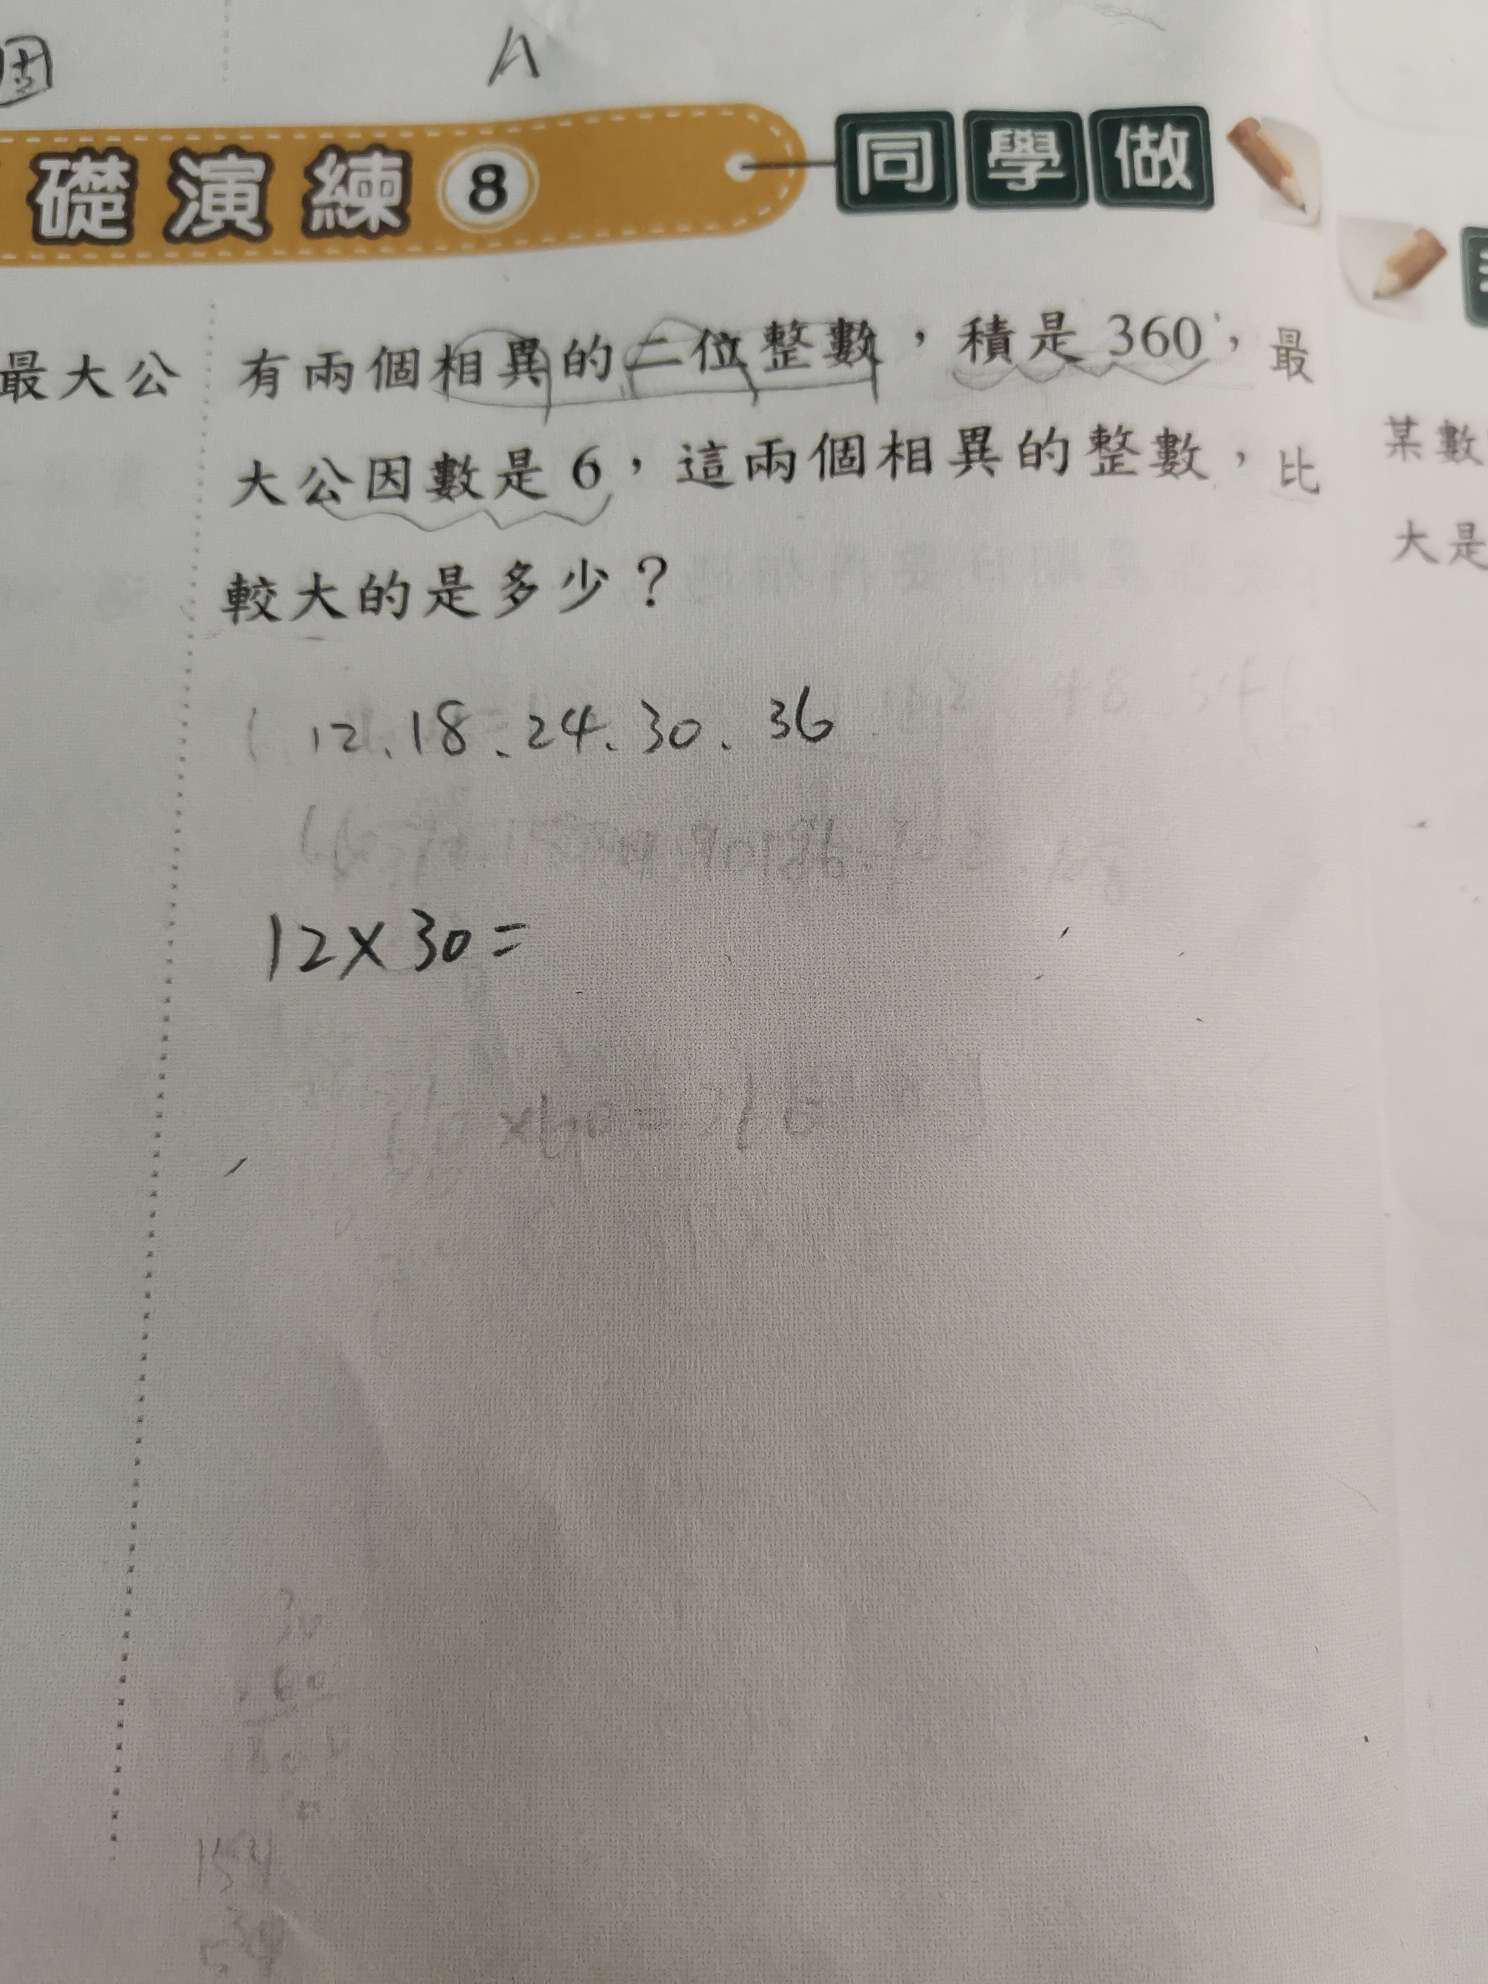 A
礎演練 8 同學做
最大公
有兩個相異的二位整數,積是360,最
大公因數是6,這兩個相異的整數,比
較大的是多少?
某數
大是
12、18、24、30、36
12×30=